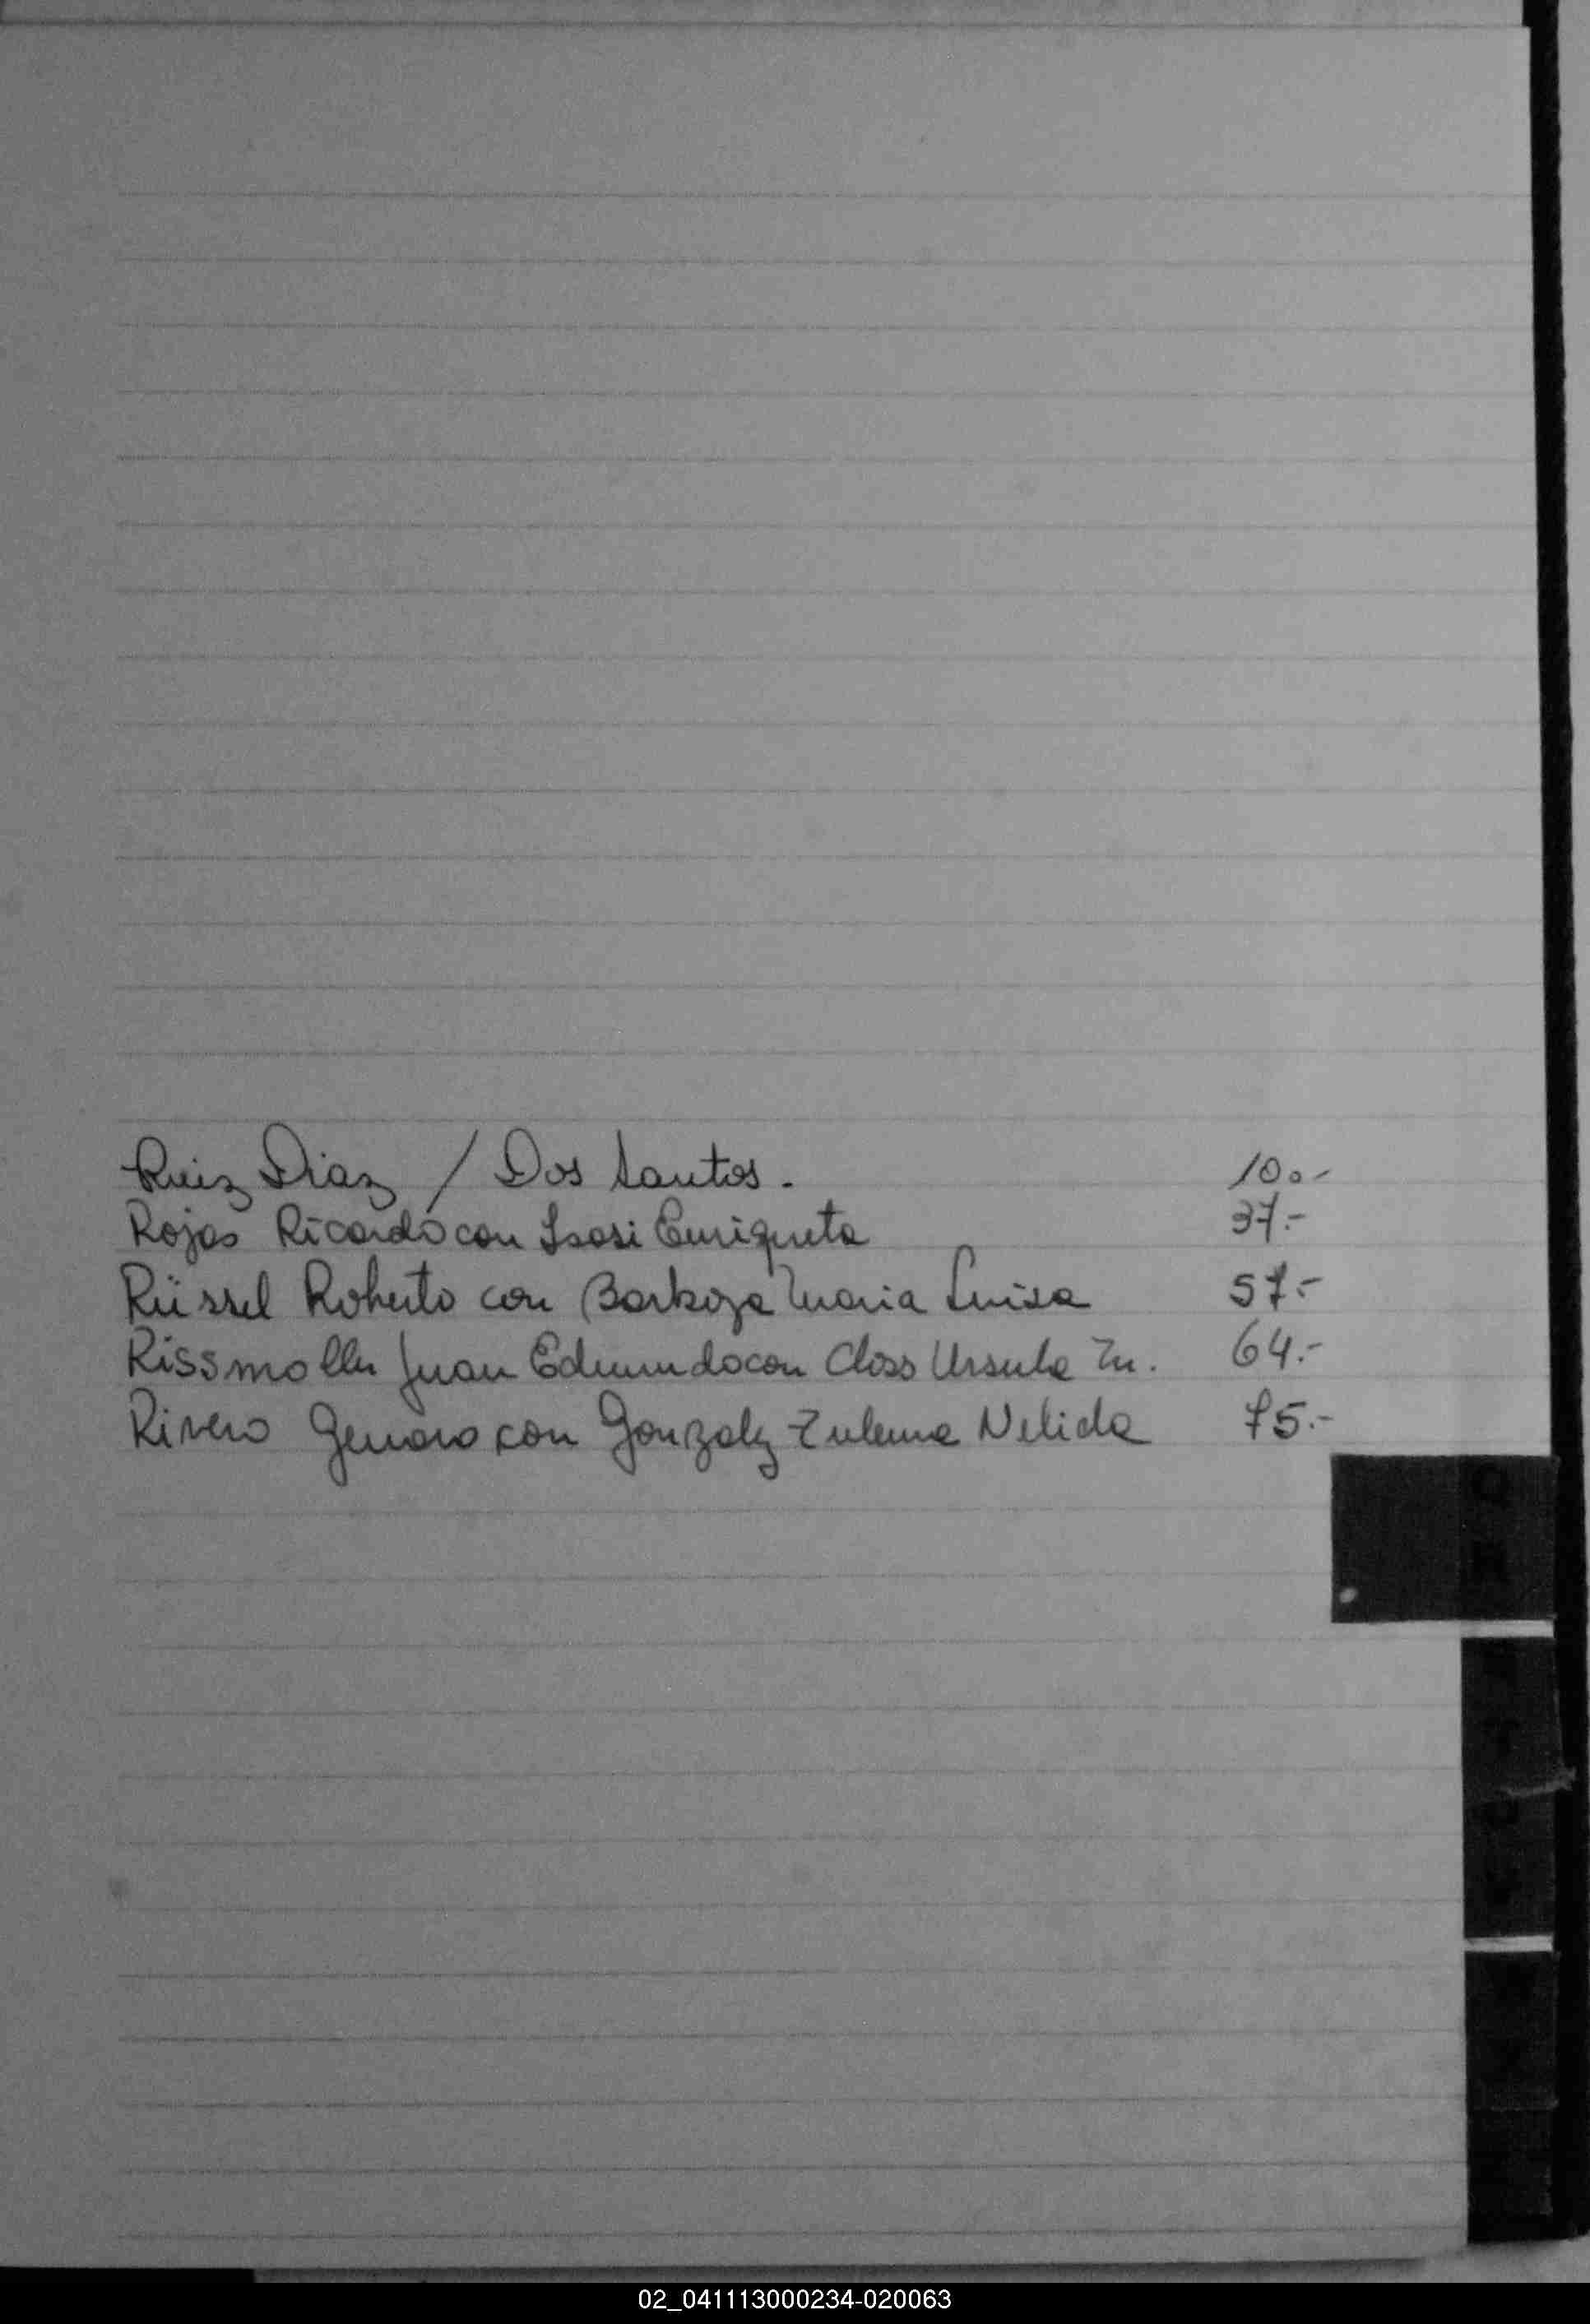 Ruiz Diaz / Dos Santos. 10.-
Rojas Ricardo con Isasi Enriqueta 37.-
Rüssel Roberto con Barboza Maria Luisa 57.-
Rissmoller Juan Edmundo con Closs Ursula M. 64.-
Rivero Genaro con Gonzalez Zulema Nelida 75.-
Q
R
02_041113000234-020063